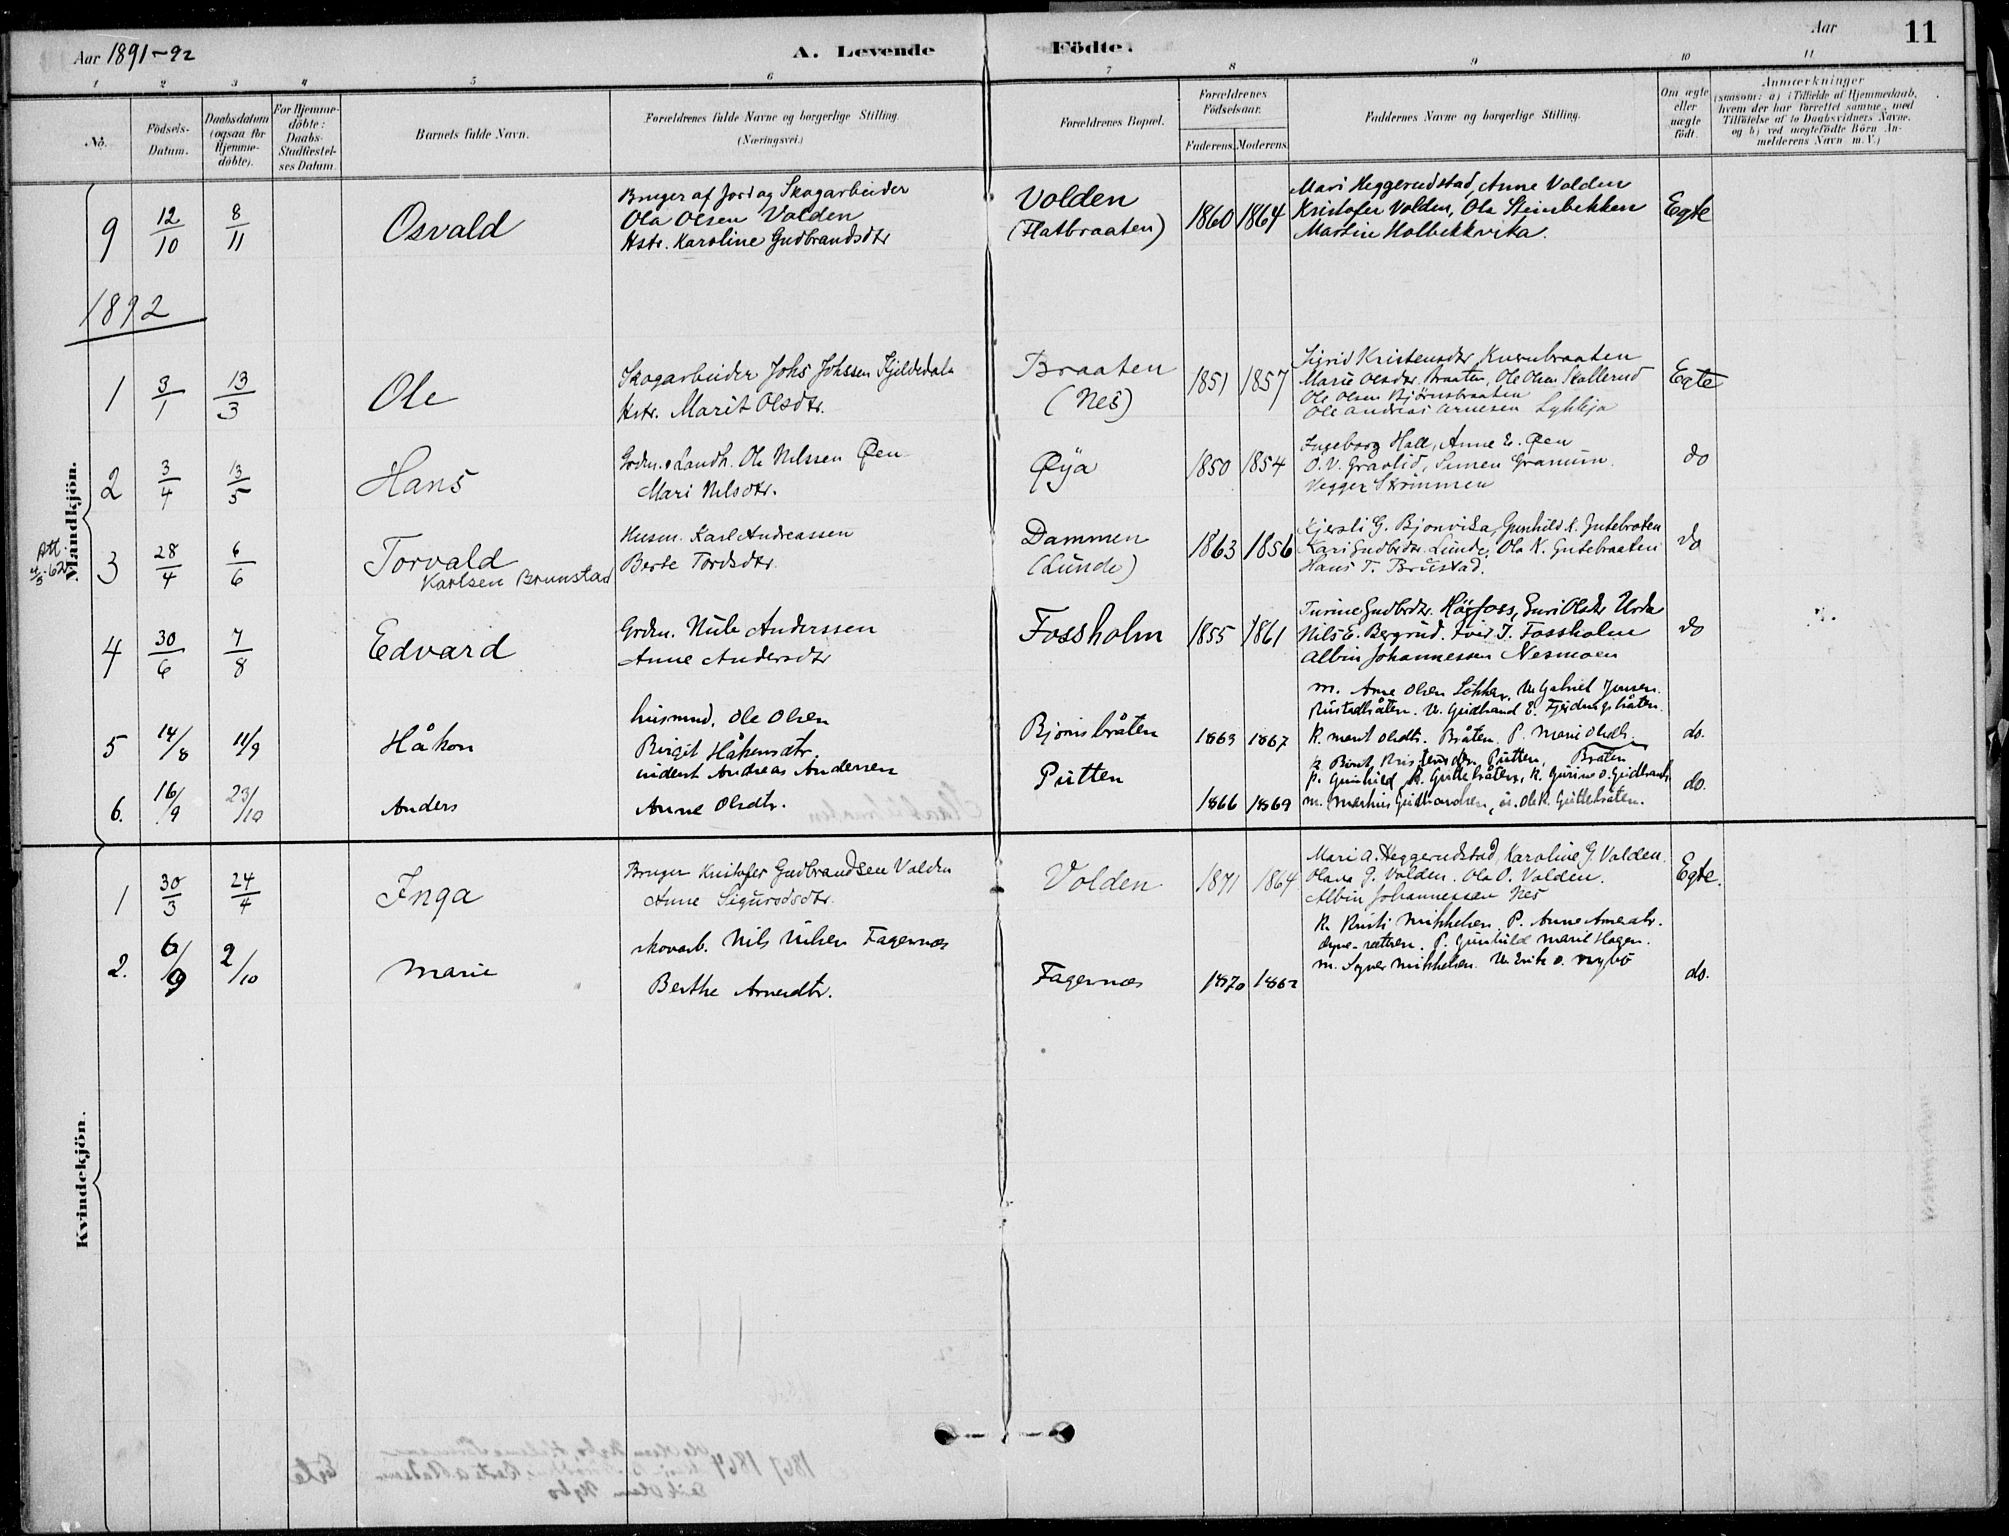 Aar 1891-92
A. Levende Födte.
Aar
11
1 2 3 4 5 6 7 8 9 10 11
No.
Födsels-
Datum.
Daabsdatum
(ogsaa for
Hjemme-
döbte).
For Hjemme-
döbte:
Daabs-
Stadfæstel-
ses Datum.
Barnets fulde Navn.
Forældrenes fulde Navne og borgerlige Stilling.
(Næringsvei.)
Forældrenes Bopæl.
Forældrenes
Födselsaar.
Faderens. Moderens.
Faddernes Navne og borgerlige Stilling.
Om ægte
eller
uægte
født.
Anmærkninger
(saasom: a) i Tilfælde af Hjemmedaab,
hvem der har forrettet samme, med
Tilføielse af to Daabsvidners Navne,
og b) ved uægtefødte Börn An-
melderens Navn m. V.)
Mandkjön.
9 12/10 8/11 Osvald
Bruger af Jord og Skogarbeider
Ola Olsen Volden
Hstr. Karoline Gudbrandsdtr
Volden
(Flatbraaten)
1860 1864
Mari Heggerudstad, Anne Volden
Kristofer Volden, Ola Steinbekken
Martin Holbekkvika.
Egte
1892
1 3/1 13/3 Ole
Skogarbeider Johs Johssen Fjeldedala
Hstr. Marit Olsdtr.
Braaten
(Nes)
1851 1857
Sigrid Kristensdtr.
Marie Olsdtr. Braaten, Ole Olsen Skollerud
Ole Olsen Bjørnsbraaten
Ole Andreas Arnesen
Egte
2 3/4 13/5 Hans
Grdm. Landh. Ole Nilssen Øen
Mari Nilsdtr.
Øya
1850 1854
Ingeborg Hall, Anne E. Øen
O. V. Gravlid, Simen Granum.
Vegger Skrimmen
do
3 28/4 6/6 Torvald
Karlsen Brunstad
Att.
4/5.62
Husm. Karl Andreassen
Berte Tordsdtr.
Dammen
(Lunde)
1863 1856
Kjersti G. Bjonvika, Gunhild K. Gutebraten
Kari Gudbrdtr. Lunde, Ola K. Gutebraaten
Hans T. Brustad.
do
4 30/6 7/8 Edvard
Grdm. Nils Anderssen
Anne Andersdtr
Fossholm
1855 1861
Turine Gudbrdtr. Høgfoss, Guri Olsdtr Urda
Nils E. Bergrud. Iver J. Fossholm
Albin Johannessen Nesmoen
do
5 14/8 11/9 Håkon
husmnd. Ole Olsen
Birgit Håkensdtr.
Bjørnsbråten
1863 1867
m. Arne Olsen Løkken. U. Gabriel Jensen
Rustadbråten. U. Gudbrand E. Fjeidungsbråten.
K. Marit Olsdtr. Bråten, P. Marie Olsdtr.
Bråten
do.
6. 16/9 23/10 Anders
inderst Andreas Andersen
Anne Olsdtr.
Putten
1866 1869
K. Berit Kristensdtr, Putten,
P. Gunhild K. Guttebråten, K. Gurine O. Gudbrands
m. Markus Gudbrandsen, u. Ole K. Guttebråten.
do.
Kvindekjön.
1 30/3 24/4 Inga
Bruger Kristofer Gudbrandsen Volden
Anne Sigurdsdtr.
Volden
1871 1864
Mari A. Heggerudstad, Karoline G. Volden.
Olava G. Volden. Ola O. Volden.
Albin Johannessen Nes
Egte.
2. 6/9 2/10 Marie
skovarb. Nils Nilsen Fagernæs
Berthe Arnesdtr.
Fagernæs
1870 1862
K. Kristi Mikkelsen. P. Anne Arnesdtr.
P. Gunhild Marie Hagen.
m. Syver Mikkelsen. U. Erik O. Nybö
do.